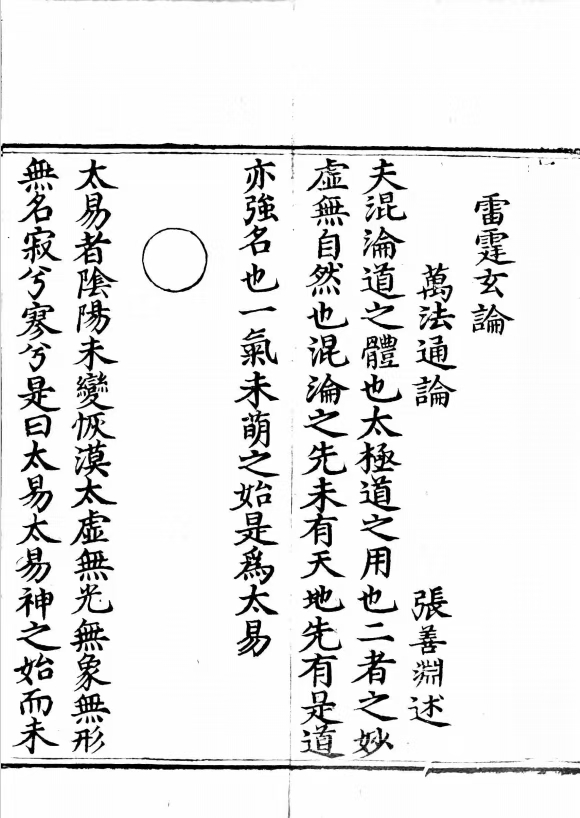 雷霆玄論
萬法通論 張善淵述
夫混淪道之體也太極道之用也二者之妙
虛無自然也混淪之先未有天地先有是道
亦強名也一氣未萌之始是爲太易
太易者陰陽未變恢漠太虛無光無象無形
無名寂兮寥兮是曰太易太易神之始而未